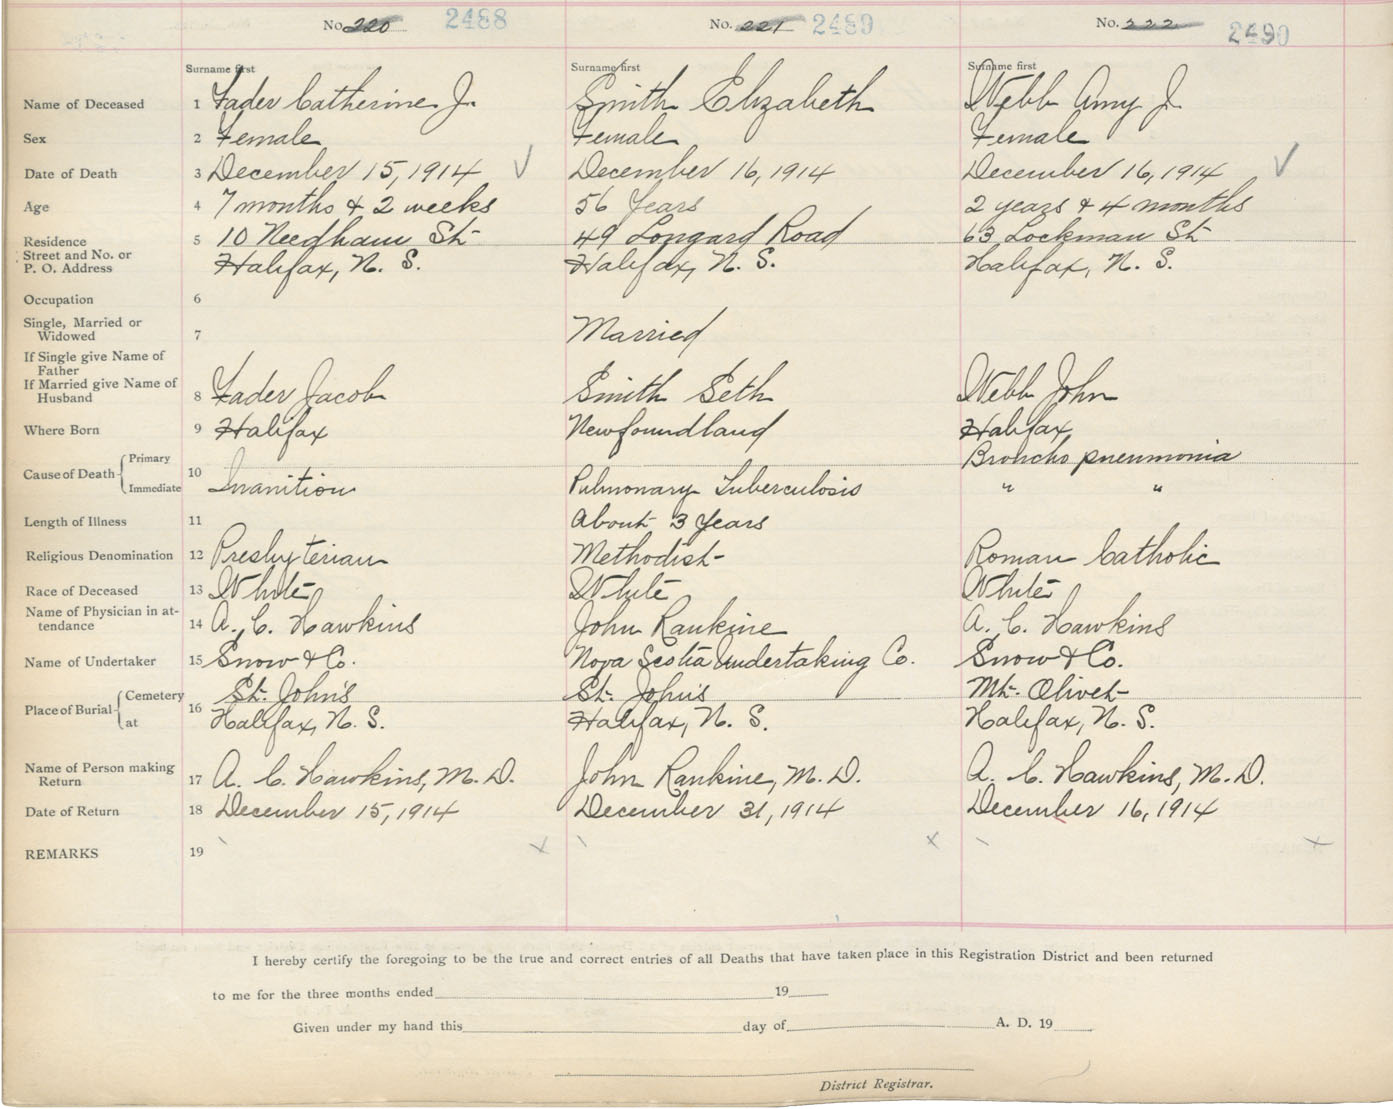 No. 220 2488 No. 221 2489 No. 222 2490
Surname first Surname first Surname first
Name of Deceased 1 Fader Catherine J. Smith Elizabeth Webb Amy J
Sex 2 Female Female Female
Date of Death 3 December 15, 1914 December 16, 1914 December 16, 1914
Age 4 7 months & 2 weeks 56 Years 2 years & 4 months
Residence 5 10 Needham St 49 Longard Road 63 Lockman St
Street and No. or
P. O. Address Halifax, N. S. Halifax, N. S. Halifax, N. S.
Occupation 6
Single, Married or
Widowed 7 Married
If Single give Name of
Father
If Married give Name of
Husband 8 Fader Jacob Smith Seth Webb John
Where Born 9 Halifax Newfoundland Halifax
Cause of Death Primary Broncho pneumonia
10
Immediate Inanition Pulmonary Tuberculosis " "
Length of Illness 11 About 3 Years
Religious Denomination 12 Presbyterian Methodist Roman Catholic
Race of Deceased 13 White White White
Name of Physician in at-
tendance 14 A. C. Hawkins John Rankine A. C. Hawkins
Name of Undertaker 15 Snow & Co. Nova Scotia Undertaking Co. Snow & Co.
Place of Burial Cemetery 16 St. John's St. John's Mt. Olivet
at Halifax, N. S. Halifax, N. S. Halifax, N. S.
Name of Person making
Return 17 A. C. Hawkins, M. D. John Rankine, M. D. A. C. Hawkins, M. D.
Date of Return 18 December 15, 1914 December 31, 1914 December 16, 1914
REMARKS 19
I hereby certify the foregoing to be the true and correct entries of all Deaths that have taken place in this Registration District and been returned
to me for the three months ended 19
Given under my hand this day of A. D. 19
District Registrar.